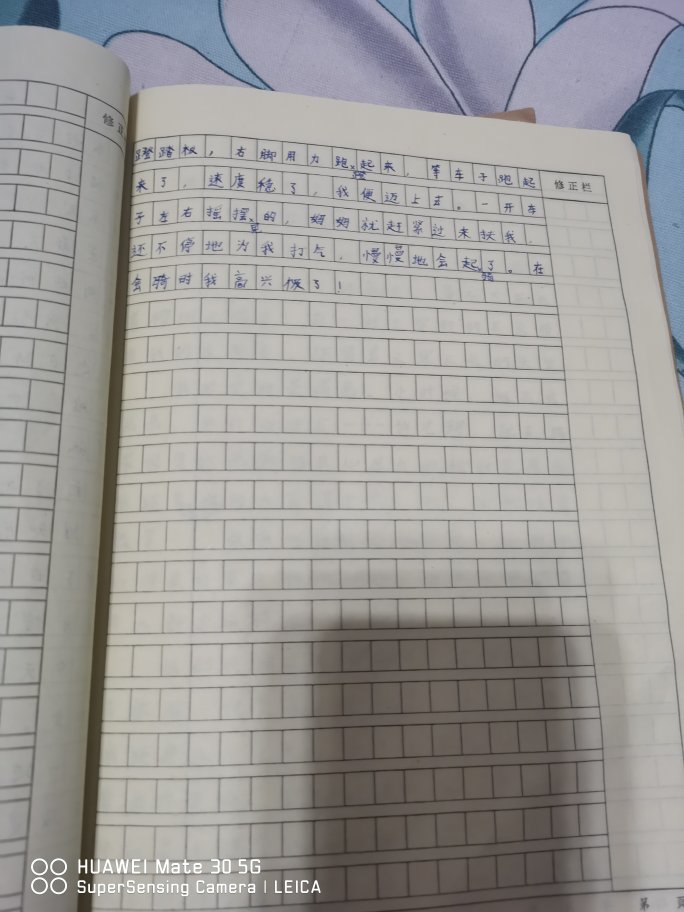 修正
修正栏
蹬踏板，右脚用力跑起来，等车子跑起
蹬
来了，速度稳了，我便迈上去。一开车
子左右摇摆的，妈妈就赶紧过来扶我，
晃
还不停地为我打气，慢慢地会起了。在
骑
会骑时我高兴极了！
第 页
HUAWEI Mate 30 5G
SuperSensing Camera | LEICA